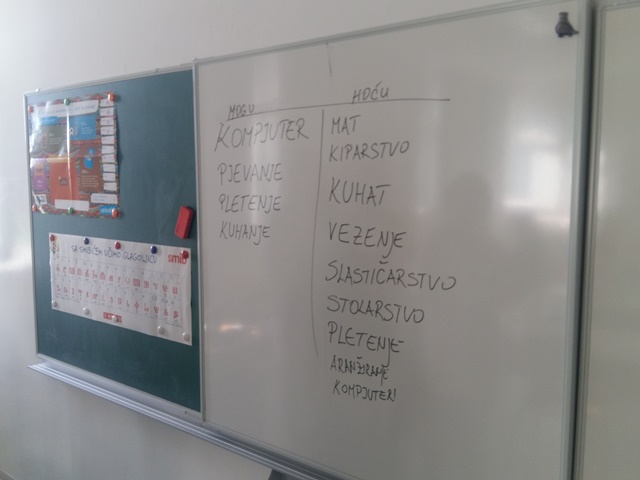 MOGU
HOĆU
KOMPJUTER
PJEVANJE
PLETENJE
KUHANJE
MAT
KIPARSTVO
KUHAT
VEZENJE
SLASTIČARSTVO
STOLARSTVO
PLETENJE
ARANŽIRANJE
KOMPJUTERI
SA SMIBIĆEM UČIMO GLAGOLJICU
smib